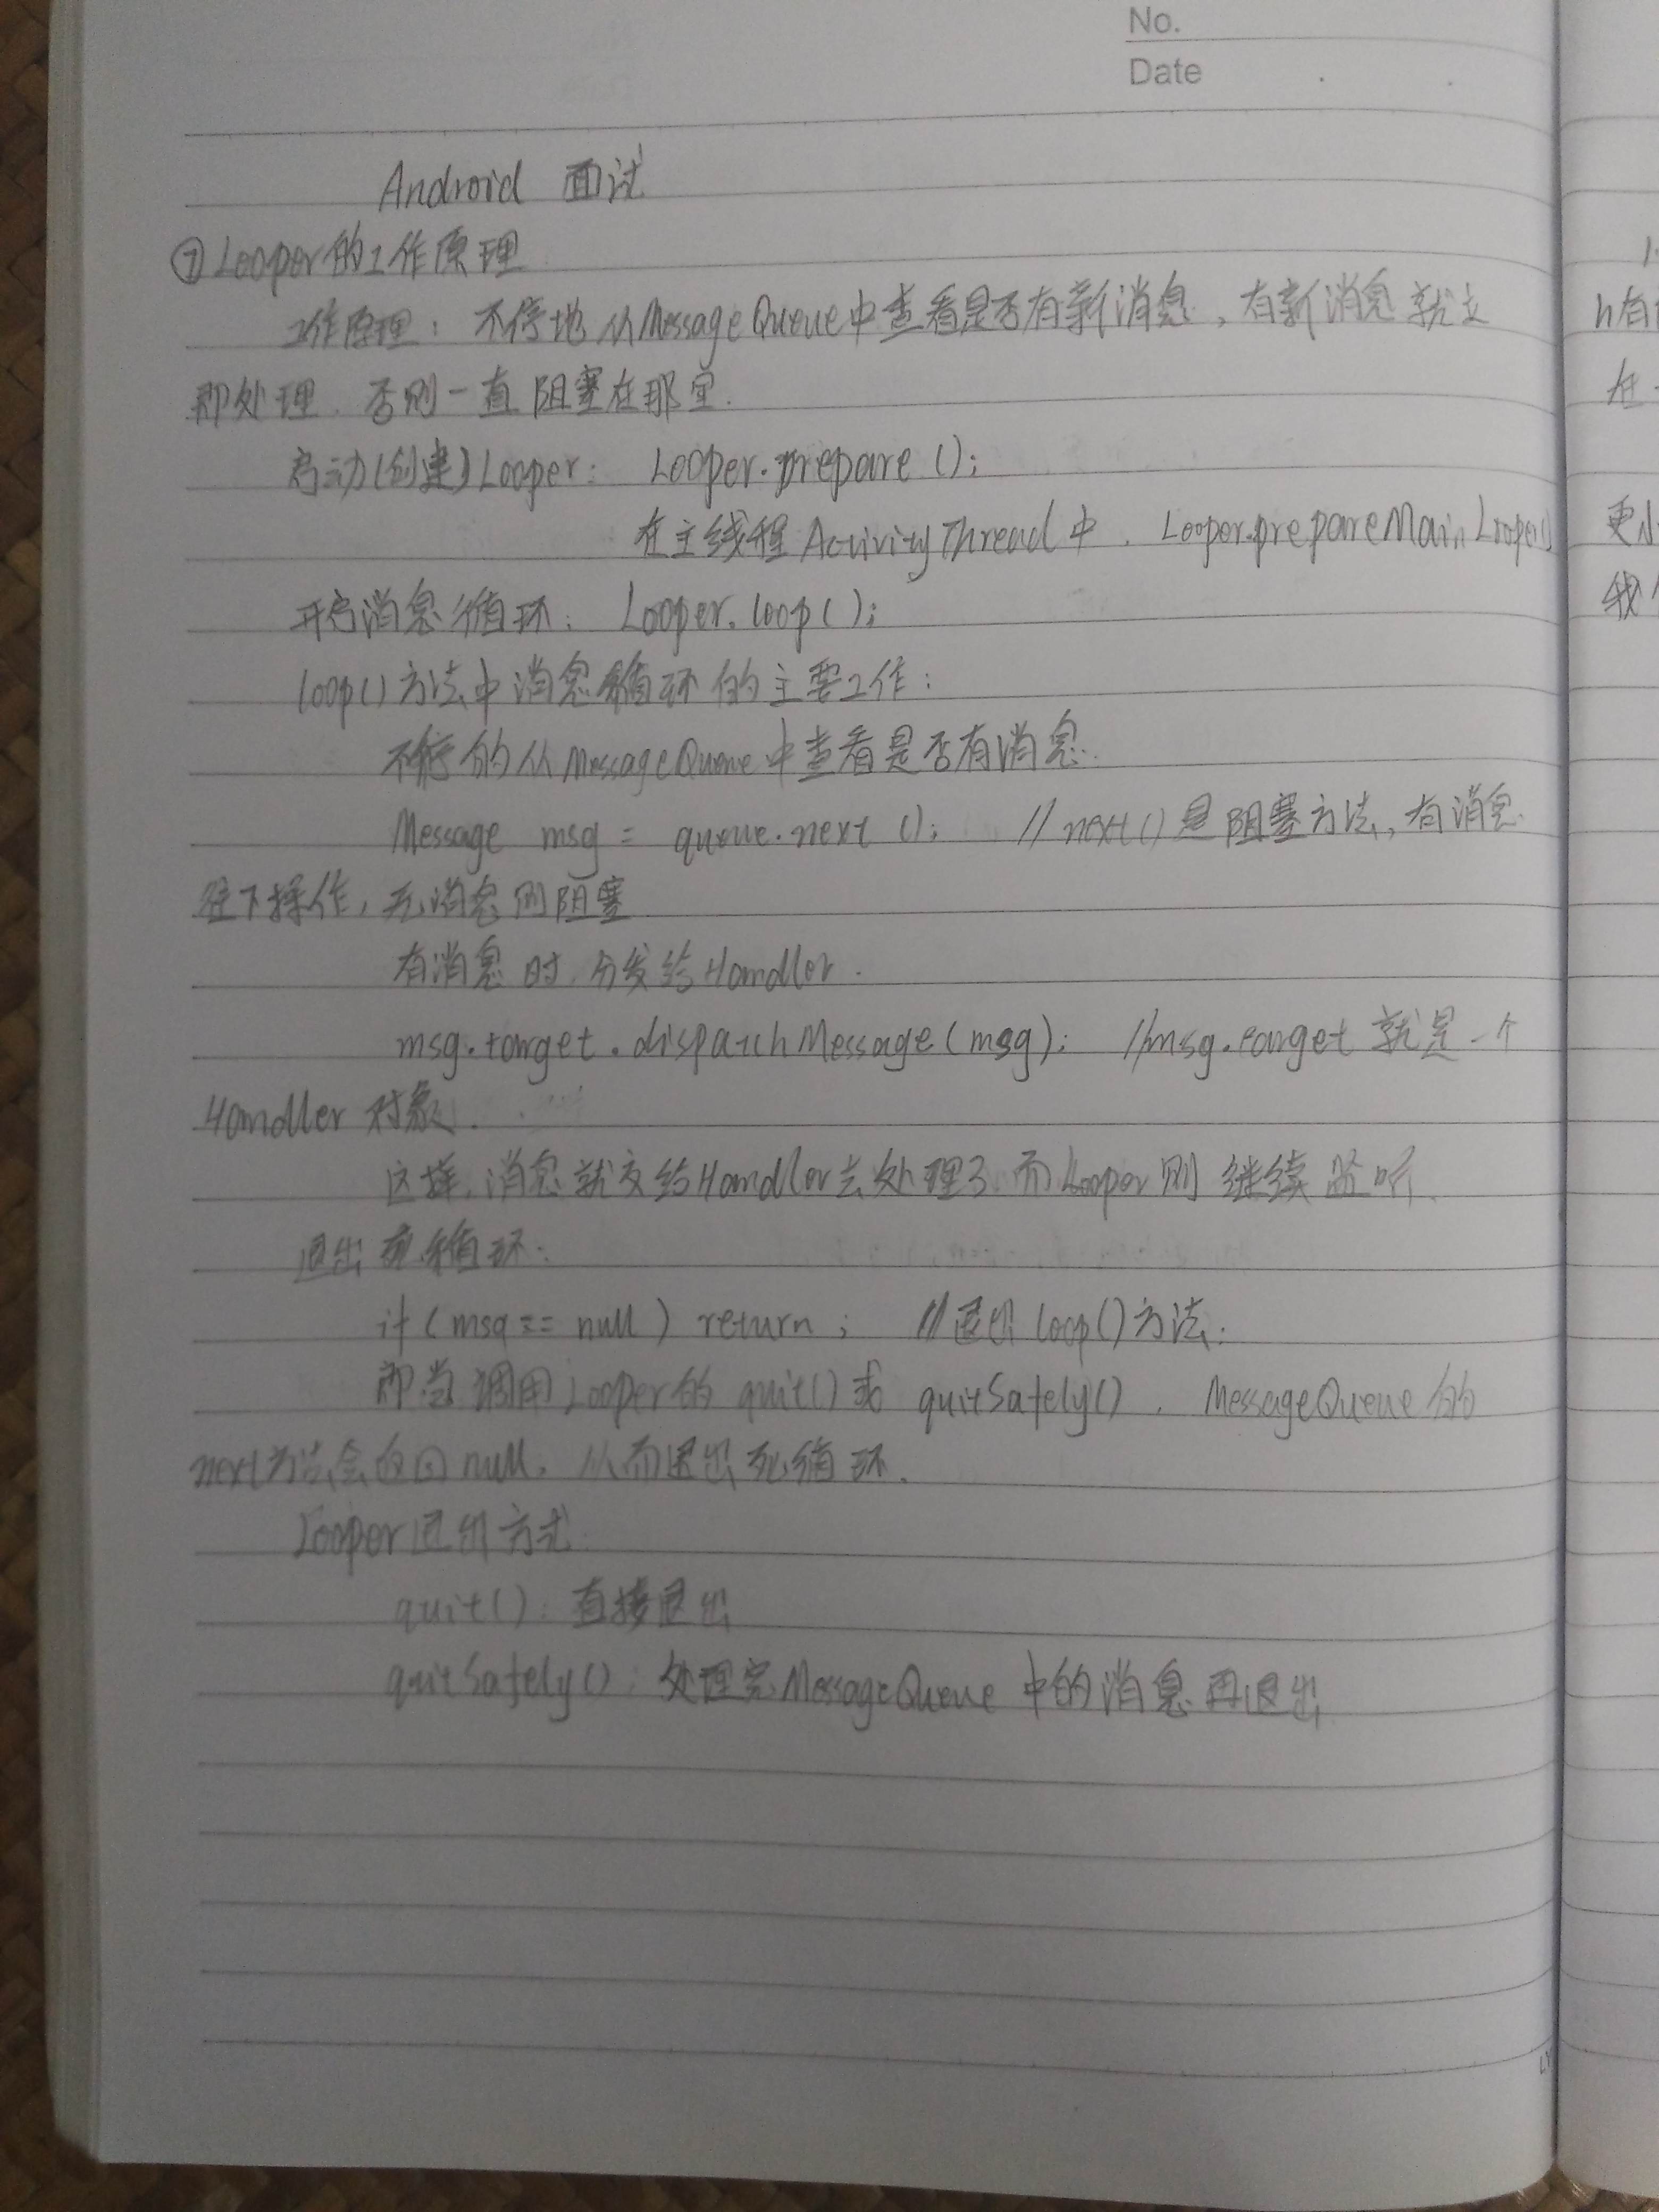 No.
Date
Android 面试
⑦Looper的工作原理
工作原理：不停地从MessageQueue中查看是否有新消息，有新消息就立
即处理．否则一直阻塞在那里．
启动(创建)Looper： Looper.prepare();
在主线程ActivityThread中．Looper.prepareMainLooper()
开启消息循环： Looper.loop();
loop()方法中消息循环的主要工作：
不停的从MessageQueue中查看是否有消息．
Message msg = queue.next (); //next()是阻塞方法，有消息
往下操作，无消息则阻塞
有消息时．分发给Handler．
msg.target.dispatchMessage(msg); //msg.target 就是一个
Handler 对象．
这样，消息就交给Handler去处理了．而Looper则 继续监听．
退出 循环：
if (msg == null) return ; //退出 loop()方法．
即当调用Looper的 quit()或 quitSafely()．MessageQueue的
next方法会返回null，从而退出死循环．
Looper退出方式
quit()：直接退出
quitSafely()：处理完MessageQueue 中的消息再退出
h有
在
更
我